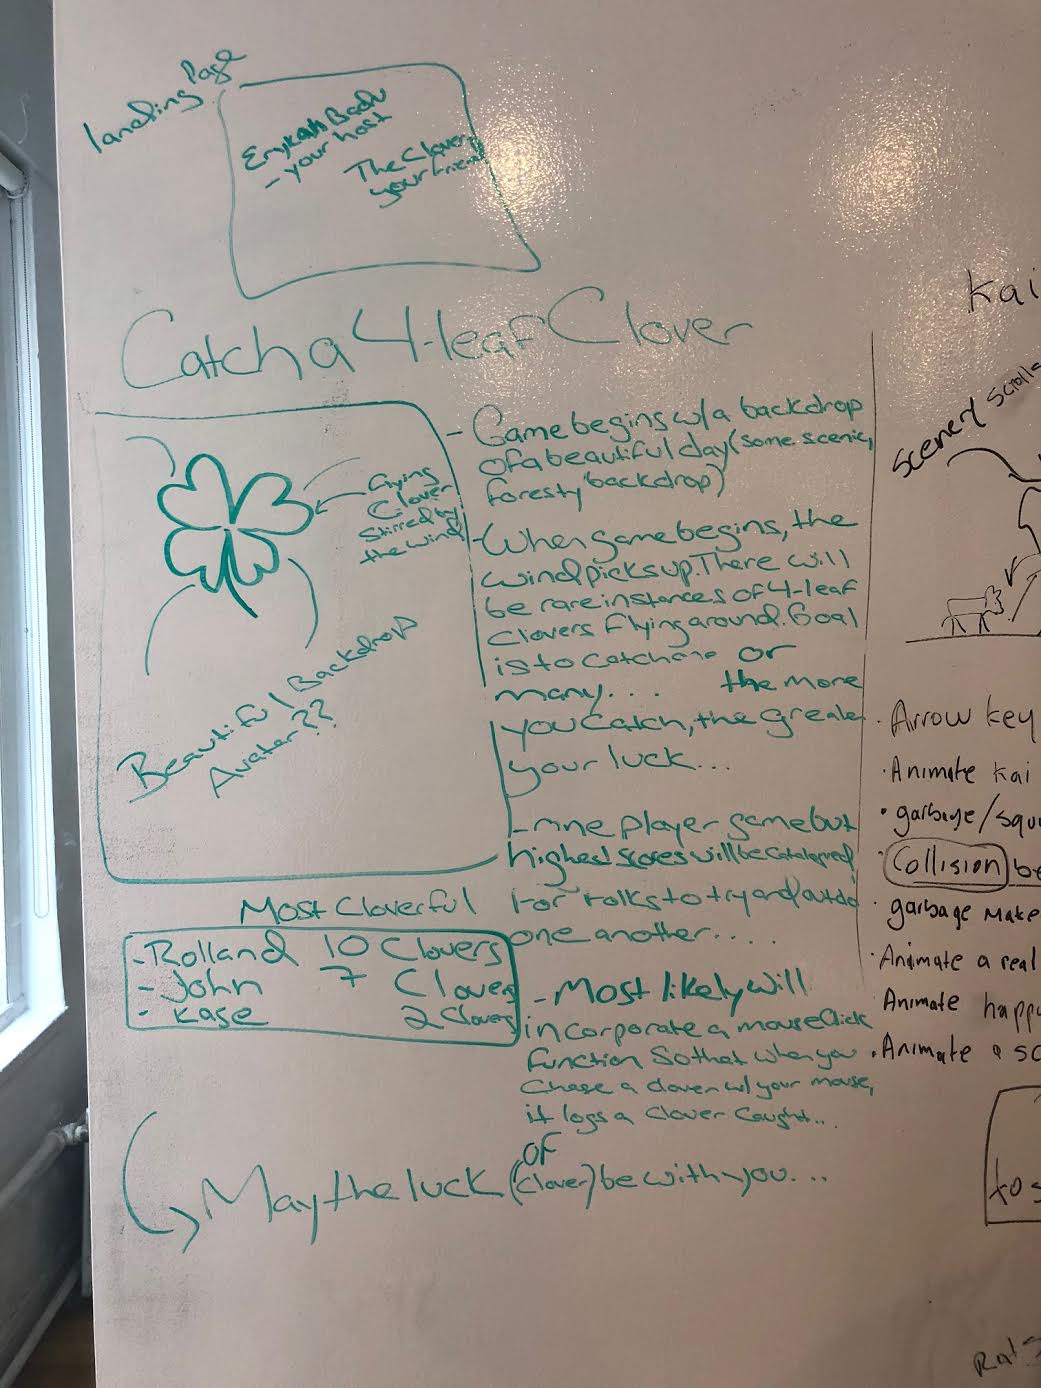 landing Page
Erykah Badu
- your host
The Clover,
your friend
Catch a 4-leaf Clover
Flying
Clover
Stirred by
the wind
Beautiful Backdrop
Avatar??
- Game begins w/ a backdrop
of a beautiful day (some scenic,
foresty backdrop)
- When game begins, the
wind picks up. There will
be rare instances of 4-leaf
Clovers flying around. Goal
is to catch one or
many... the more
you catch, the greater
your luck...
- one player game but
highest scores will be cataloged
for folks to try and outdo
one another....
- Most likely will
incorporate a mouse click
function so that when you
chase a clover w/ your mouse,
it logs a clover caught...
Most Cloverful
- Rolland 10 Clovers
- John 7 Clovers
- Kase 2 Clovers
May the luck (of Clover) be with you...
Kai
Scenery Scrolls
Arrow key
Animate Kai
garbage/squi
Collision be
garbage Make
Animate a real
Animate happy
Animate a sc
to s